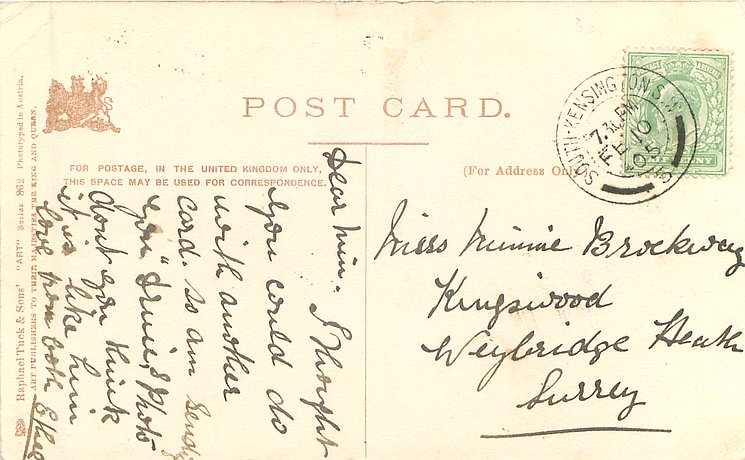 POST CARD.
FOR POSTAGE, IN THE UNITED KINGDOM ONLY,
THIS SPACE MAY BE USED FOR CORRESPONDENCE.
(For Address Only
SOUTH KENSINGTON S.W.
7.30 PM
FE 10
05
Dear Min. I thought
you could do
with another
card. So am sendg
you "Irvine's Photo
dont you think
it is like him
love from both
Miss Minnie Brockway
Kingswood
Weybridge Heath
Surrey
Raphael Tuck & Sons' "ART" Series 862 Phototyped in Austria.
ART PUBLISHERS TO THEIR MAJESTIES THE KING AND QUEEN.